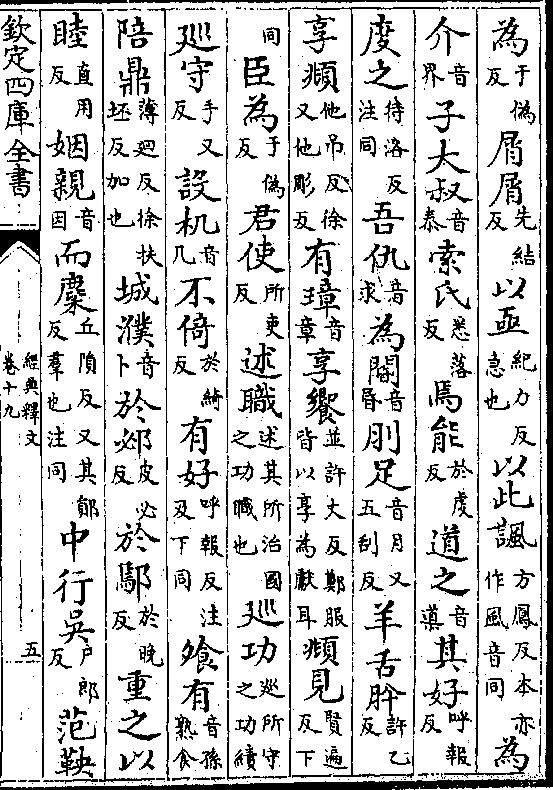 為于偽反屑屑先結反以亟紀力反急也以此諷方鳳反本亦作風音同為
介音界子大叔音泰索氏悉落反焉能於虔反道之音導其好呼報反
度之待洛反注同吾仇音求為閽音昏刖足音月又五刮反羊舌肸許乙反
享頫他吊反徐又他彫反有璋音章享饗並許丈反鄭服皆以享為獻耳頫見賢遍反下
同臣為于偽反君使所吏反述職述其所治國之功職也巡功巡所守之功績
廵守手又反設机音几不倚於綺反有好呼報反注及下同飱有音孫熟食
陪鼎薄廻反徐扶坯反加也城濮音卜於邲皮必反於鄢於晚反重之以
睦直用反姻親音因而麋丘隕反又其鄖反羣也注同中行吳户郎反范鞅
欽定四庫全書
經典釋文
卷十九
五